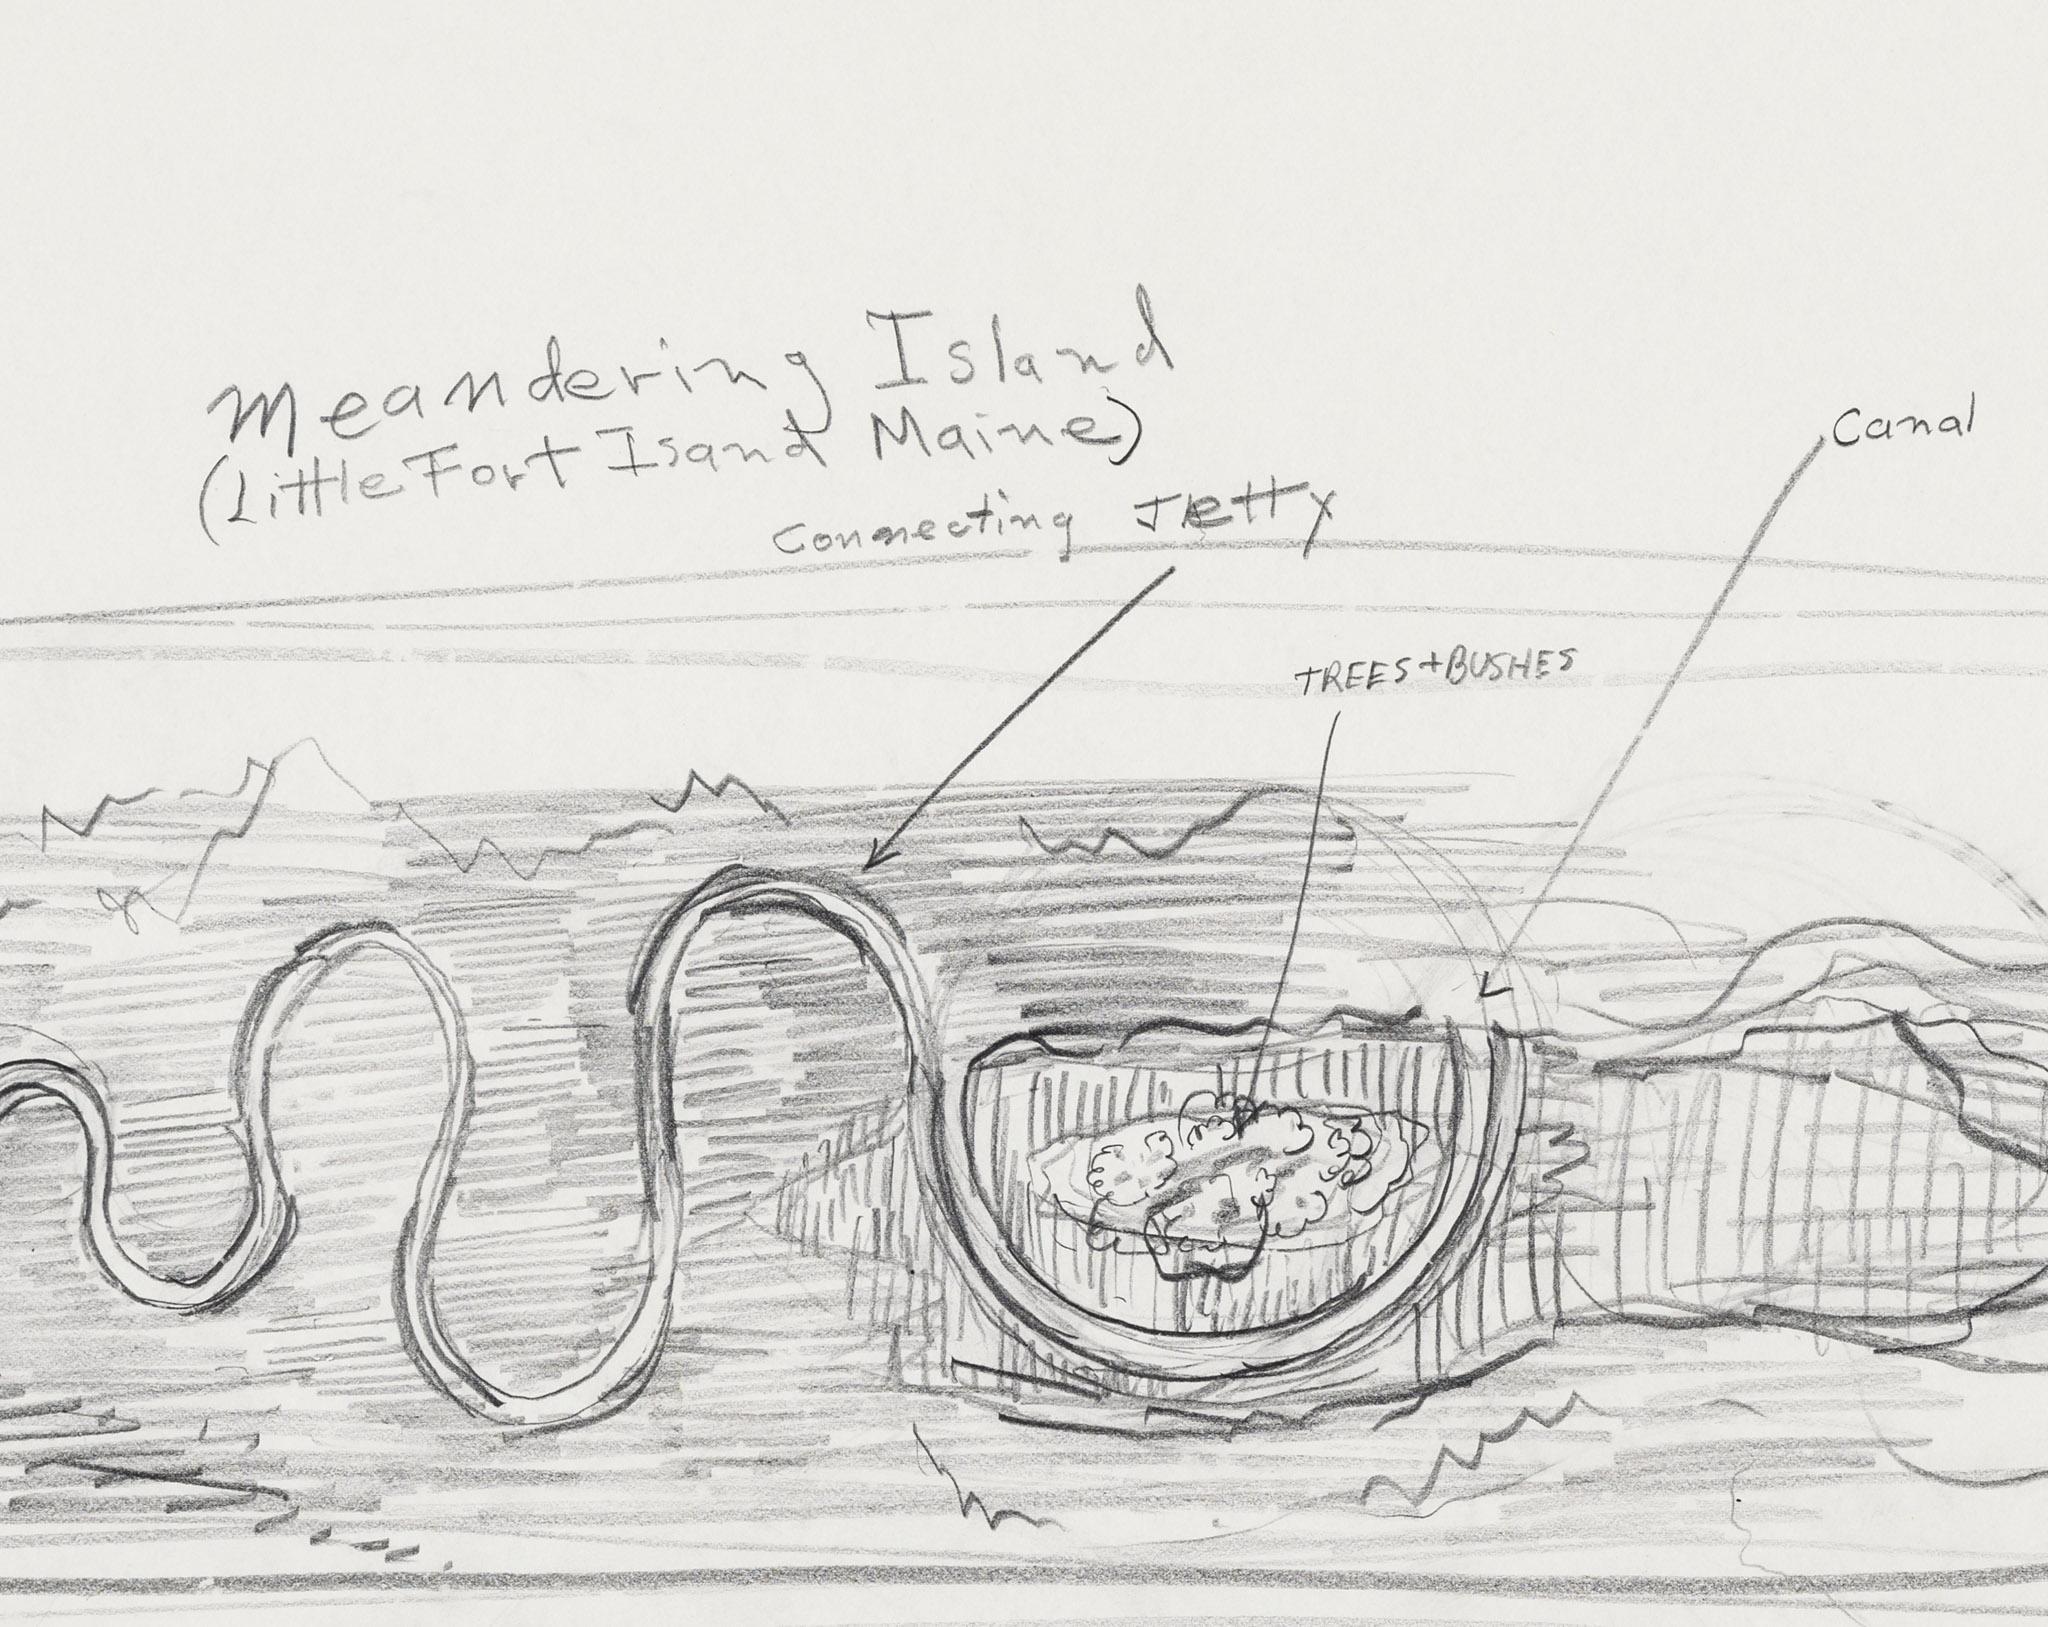 Meandering Island
(Little Fort Isand Maine)
Connecting Jetty
Canal
TREES+BUSHES